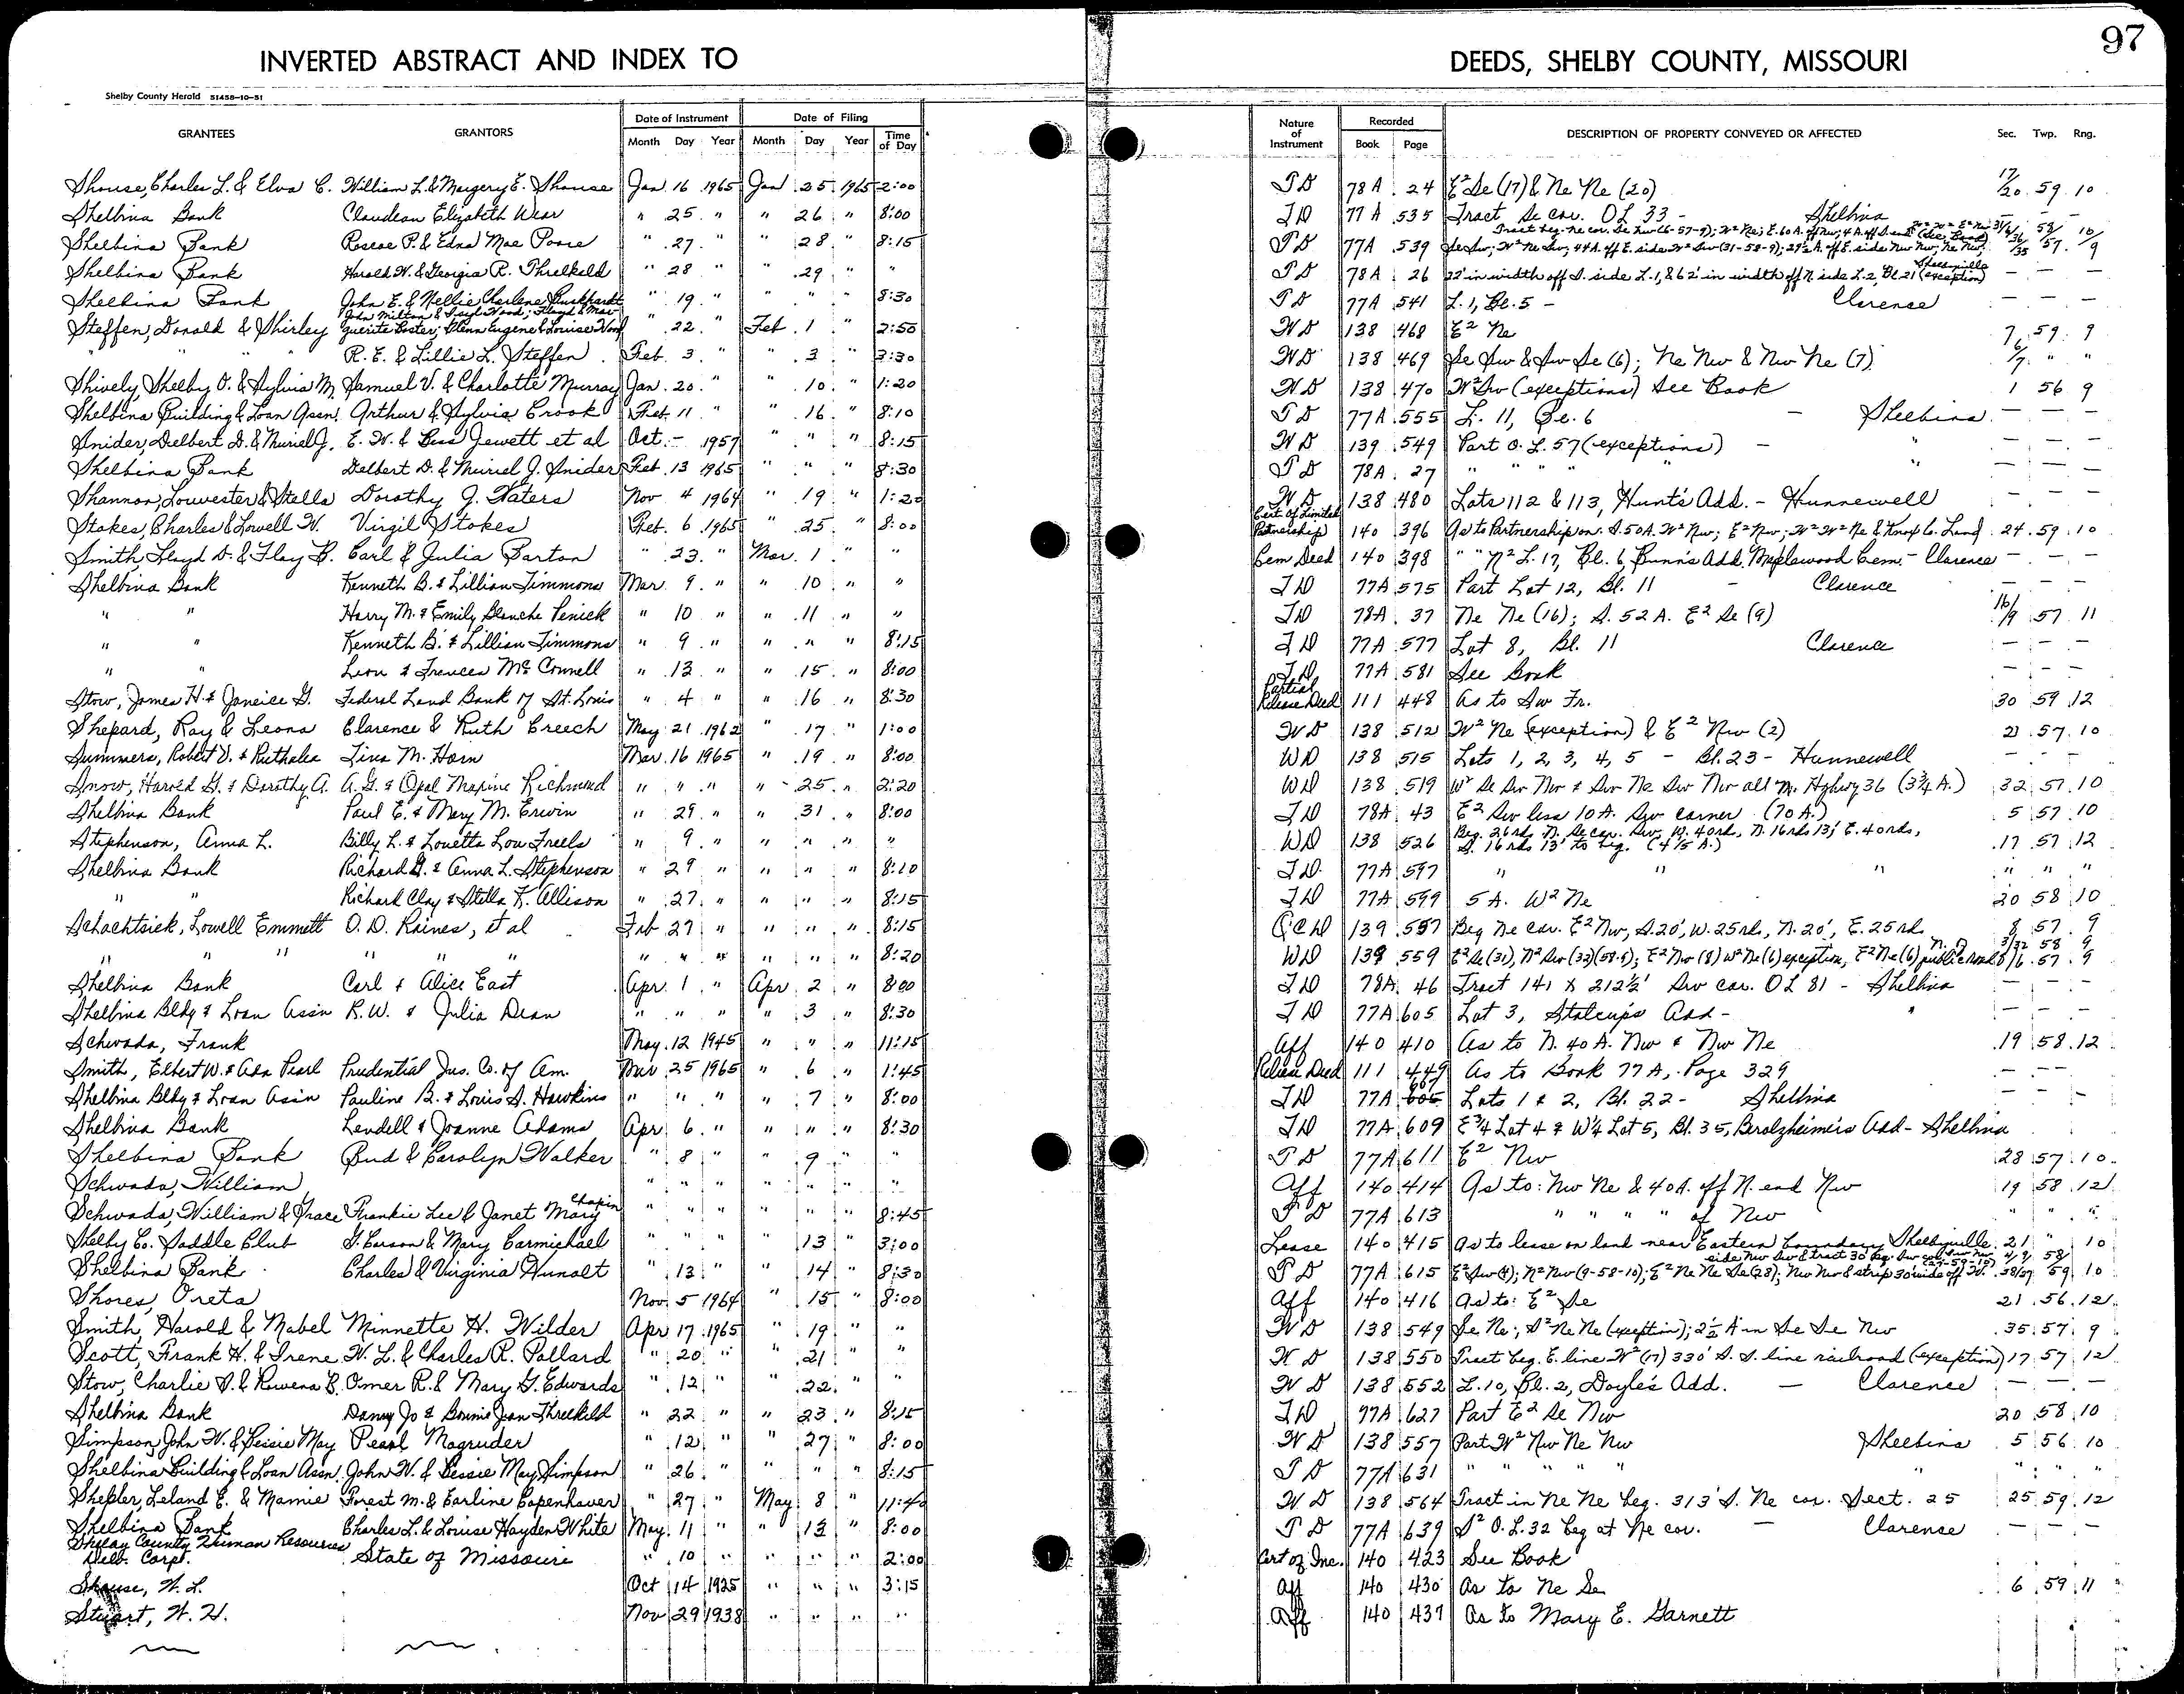 97
INVERTED ABSTRACT AND INDEX TO DEEDS, SHELBY COUNTY, MISSOURI
Shelby County Herald 51458-10-51
GRANTEES GRANTORS Date of Instrument Date of Filing Nature of Instrument Recorded DESCRIPTION OF PROPERTY CONVEYED OR AFFECTED Sec. Twp. Rng.
Month Day Year Month Day Year Time of Day Book Page
Shouse, Charles L. & Elva C. William L. & Margery E. Shouse Jan 16 1965 Jan 25 1965 2:00 TD 78A 24 E² Se (17) & Ne Ne (20) 17/20 59 10
Shelbina Bank Claudean Elizabeth Wear " 25 " " 26 " 8:00 TD 77A 535 Tract Se cor. OL 33 - Shelbina — — —
Shelbina Bank Roscoe P. & Edna Mae Poore " 27 " " 28 " 8:15 TD 77A 539
Shelbina Bank Harold W. & Georgia R. Threlkeld " 28 " " 29 " " TD 78A 26 22' in width off S. side L. 1, & 62' in width off N side L. 2, Bl. 21 (exception) Shelbyville — — —
Shelbina Bank John E. & Nellie Charlene Burkhardt " 19 " " " " 8:30 TD 77A 541 L. 1, Bl. 5 - Clarence — — —
Steffen, Donald & Shirley Glenn Eugene & Louise Wood " 22 " Feb. 1 " 2:50 WD 138 468 E² Ne 7 59 9
" " " R. E. & Lillie L. Steffen Feb. 3 " " 3 " 3:30 WD 138 469 Se Sw & Sw Se (6); Ne Nw & Nw Ne (7) 6/7 " "
Shively, Shelby O. & Sylvia M. Samuel V. & Charlotte Murray Jan. 20 " " 10 " 1:20 WD 138 470 W² Sw (exceptions) See Book 1 56 9
Shelbina Building & Loan Assn. Arthur & Sylvia Crook Feb. 11 " " 16 " 8:10 TD 77A 555 L. 11, Bl. 6 - Shelbina — — —
Snider, Delbert D. & Muriel J. E. W. & Bess Jewett et al Oct. - 1957 " " " 8:15 WD 139 549 Part O. L. 57 (exceptions) - " — — —
Shelbina Bank Delbert D. & Muriel J. Snider Feb. 13 1965 " " " 8:30 TD 78A 27 " " " " " — — —
Shannon, Louwester & Stella Dorothy J. Waters Nov 4 1964 " 19 " 1:20 WD 138 480 Lots 112 & 113, Hunt's Add. - Hunnewell — — —
Stokes, Charles & Lowell W. Virgil Stokes Feb. 6 1965 " 25 " 8:00 Cert of Limited Partnership 140 396 As to Partnership on S. 50A. W² Nw; E² Nw; W² W² Ne & Knox Co. Land 24 59 10
Smith, Lloyd D. & Flay B. Carl & Julia Barton " 23 " Mar. 1 " " Cem Deed 140 398 " " N² L. 17, Bl. 6, Bunn's Add. Maplewood Cem. - Clarence — — —
Shelbina Bank Kenneth B. & Lillian Timmons Mar. 9 " " 10 " " TD 77A 575 Part Lot 12, Bl. 11 - Clarence — — —
" " Harry M. & Emily Blanche Penick " 10 " " 11 " " TD 78A 37 Ne Ne (16); S. 52 A. E² Se (9) 16/9 57 11
" " Kenneth B. & Lillian Timmons " 9 " " " " 8:15 TD 77A 577 Lot 8, Bl. 11 Clarence — — —
" " Leon & Frances McConnell " 13 " " 15 " 8:00 TD 77A 581 See Book — — —
Stow, James H. & Janeice G. Federal Land Bank of St. Louis " 4 " " 16 " 8:30 Partial Release Deed 111 448 As to Sw Fr. 30 59 12
Shepard, Ray & Leona Clarence & Ruth Creech May 21 1962 " 17 " 1:00 WD 138 512 W² Ne (exception) & E² Nw (2) 2 57 10
Summers, Robert D. & Ruthalea Tina M. Horn Mar. 16 1965 " 19 " 8:00 WD 138 515 Lots 1, 2, 3, 4, 5 - Bl. 23 - Hunnewell — — —
Snow, Harold G. & Dorothy A. A. G. & Opal Maxine Richmond " " " " 25 " 2:20 WD 138 519 W² Se Sw Nw & Sw Ne Sw Nw all N. Highwy 36 (3¾ A.) 32 57 10
Shelbina Bank Paul E. & Mary M. Erwin " 29 " " 31 " 8:00 TD 78A 43 E² Sw less 10 A. Sw corner (70 A.) 5 57 10
Stephenson, Anna L. Billy L. & Louetta Lou Freels " 9 " " " " " WD 138 526 Beg. 26 rds N. Se cor. Sw, W. 40 rds, N. 16 rds 13', E. 40 rds, S. 16 rds 13' to beg. (4 1/5 A.) 17 57 12
Shelbina Bank Richard G. & Anna L. Stephenson " 29 " " " " 8:10 TD 77A 597 " " " " " "
" " Richard Clay & Stella F. Allison " 27 " " " " 8:15 TD 77A 599 5 A. W² Ne 20 58 10
Schachtsiek, Lowell Emmett O. D. Raines, et al Feb 27 " " " " 8:15 QCD 139 557 Beg Ne cor. E² Nw, S. 20', W. 25 rds, N. 20', E. 25 rds. 8 57 9
" " " " " " " " " " " " 8:20 WD 139 559 E² Se (31), N² Sw (32)(58-9); E² Nw (8) W² Ne (6) exception, E² Ne (6) N. of public road
Shelbina Bank Carl & Alice East Apr. 1 " Apr 2 " 8:00 TD 78A 46 Tract 141 x 212½' Sw cor. OL 81 - Shelbina — — —
Shelbina Bldg & Loan Assn R. W. & Julia Dean " " " " 3 " 8:30 TD 77A 605 Lot 3, Stalcup's Add - " — — —
Schwada, Frank May 12 1945 " " " 11:15 Aff 140 410 As to N. 40 A. Nw & Nw Ne 19 58 12
Smith, Elbert W. & Ada Pearl Prudential Ins. Co. of Am. Mar 25 1965 " 6 " 1:45 Release Deed 111 449 As to Book 77A, Page 329 — — —
Shelbina Bldg & Loan Assn Pauline B. & Louis S. Hawkins " " " " 7 " 8:00 TD 77A 607 Lots 1 & 2, Bl. 22 - Shelbina — — —
Shelbina Bank Lendell & Joanne Adams Apr 6 " " " " 8:30 TD 77A 609 E¾ Lot 4 & W¼ Lot 5, Bl. 35, Berolzheimer's Add - Shelbina
Shelbina Bank Bud & Carolyn Walker " 8 " " 9 " " TD 77A 611 E² Nw 28 57 10
Schwada, William " " " " " " " Aff 140 414 As to: Nw Ne & 40A. off N. end Nw 19 58 12
Schwada, William & Grace Frankie Lee & Janet Mary Chapin " " " " " " 8:45 TD 77A 613 " " " " of Nw " " "
Shelby Co. Saddle Club G. Carson & Mary Carmichael " " " " 13 " 3:00 Lease 140 415 As to lease on land near Eastern boundary Shelbyville 21 " 10
Shelbina Bank Charles & Virginia Hunolt " 13 " " 14 " 8:30 TD 77A 615
Shores, Oreta Nov. 5 1964 " 15 " 8:00 Aff 140 416 As to: E² Se 21 56 12
Smith, Harold & Mabel Minnette H. Wilder Apr 17 1965 " 19 " " WD 138 549 Se Ne; S² Ne Ne (exception); 2½ A in Se Se Nw 35 57 9
Scott, Frank H. & Irene W. L. & Charles R. Pollard " 20 " " 21 " " WD 138 550 Tract beg. E. line W² (17) 330' S. S. line railroad (exception) 17 57 12
Stow, Charlie S. & Rowena B. Omer R. & Mary G. Edwards " 12 " " 22 " " WD 138 552 L. 10, Bl. 2, Doyle's Add. - Clarence — — —
Shelbina Bank Danny Jo & Bonnie Jean Threlkeld " 22 " " 23 " 8:15 TD 77A 627 Part E² Se Nw 20 58 10
Simpson, John W. & Bessie May Pearl Magruder " 12 " " 27 " 8:00 WD 138 557 Part W² Nw Ne Nw Shelbina 5 56 10
Shelbina Building & Loan Assn. John W. & Bessie May Simpson " 26 " " " " 8:15 TD 77A 631 " " " " " " " " "
Shepler, Leland E. & Mamie Forest M. & Earline Copenhaver " 27 " May 8 " 11:40 WD 138 564 Tract in Ne Ne beg. 313' S. Ne cor. Sect. 25 25 59 12
Shelbina Bank Charles L. & Louise Hayden White May 11 " " 13 " 8:00 TD 77A 639 S² O. L. 32 beg at Ne cor. - Clarence — — —
Shelby County Human Resources Corp. State of Missouri " 10 " " " " 2:00 Cert of Inc. 140 423 See Book
Shouse, W. L. Oct 14 1925 " " " 3:15 Aff 140 430 As to Ne Se 6 59 11
Stuart, W. H. Nov 29 1938 " " " " Aff 140 437 As to Mary E. Garnett